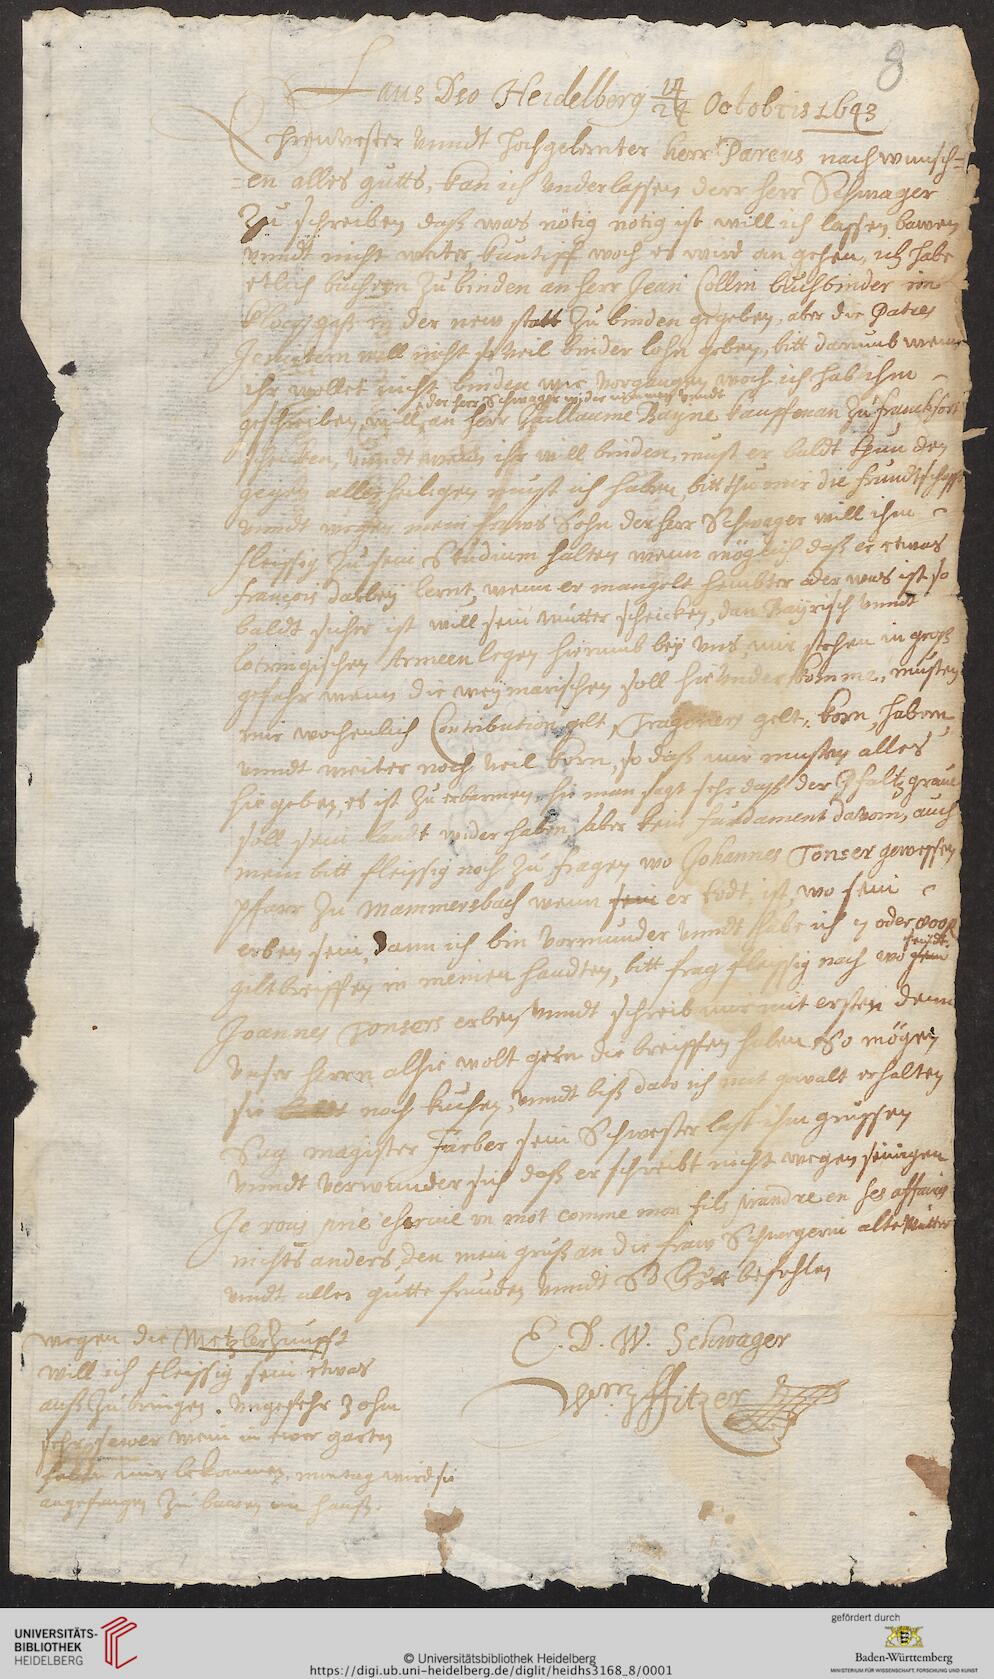 8
Laus Deo Heidelberg 14/24 Octobris 1643
Ehrnvester vnndt hochgelernter herr Pareus nach wunsch-
=en alles gutts, kan ich vnderlassen derr herr Schwager
Zu schreiben daß was nötig nötig ist will ich lassen bawen
vnndt nicht weiter, woch es wird an gehen, ich habe
etlich buchern zu binden an herr Jean Collin buchbinder im
gaß in der new statt zu binden gegeben, aber die Patres
Jesuitern will nicht so veil binder lohn geben, bitt darumb wenn
ihr wollet nicht binden wie vorgangen woch ich hab ihm
der herr Schwager wider vmb vnndt
geschreiben, will an herr Guillaume Bayne kauffman zu franckfort
schicken, vnndt wenn ihr will binden, must er baldt thun den
gegen allerheiligen must ich haben, bitt thu mir die freundtschafft
vnndt wegen mein fraws Sohn der herr Schwager will ihm
fleissig zu sein Studium halten wenn möglich daß er etwas
françois darbey lernt, wenn er mangelt hembter oder was ist so
baldt sicher ist will sein mutter scheicken, dan Bayrisch vnndt
lotringischen Armeen legen hierumb bey vns, mir stehen in groß
gefahr wenn die weymarischen soll hierunder komme, musten
mir wochenlich Contribution gelt, Dragoners gelt, korn, habern
vnndt weiter noch veil korn, so daß mir musten alles
hie geben, es ist zu erbarmen, hie man sagt sehr daß der Pfaltzgraue
soll sein landt wider haben, aber kein fundament darvom, auch
mein bitt fleissig noch zu fragen wo Johannes Tonser gewessen
pfarr zu Mammersbach wenn sein er todt ist, wo sein
erben sein, dann ich bin vormunder vnndt habe ich 7 oder 800 fl
giltbreiffen in meinen handten, bitt frag fleissig nach wo sein sendt
Joannes Tonsers erben vnndt schreib mir mit ersten denn
vnser herrn alhie wolt gern die breiffen haben So mögen
sie noch suchen, vnndt biß dato ich mit gewalt erhalten
Sag magister Färber sein Schwester last ihm grussen
vnndt verwunder sich daß er schreibt nicht wegen seinigen
Je vous prie escrive vn mot comme mon fils prandre en ses affaires
nichts anders den mein gruß an die fraw Schwegerin alte Mutter
vndt alles gutte freunden vnndt befohlen
E. D. W. Schwager
Fitzer
wegen die Metzlerzunfft
will ich fleissig sein etwas
auß zu bringen. Vngefehr 3 ohm
sehr sawer wein in ewer garten
haben mir bekommen, montag wird sie
angefangen zu bawen im hauß.
UNIVERSITÄTS-
BIBLIOTHEK
HEIDELBERG
© Universitätsbibliothek Heidelberg
https://digi.ub.uni-heidelberg.de/diglit/heidhs3168_8/0001
gefördert durch
Baden-Württemberg
MINISTERIUM FÜR WISSENSCHAFT, FORSCHUNG UND KUNST